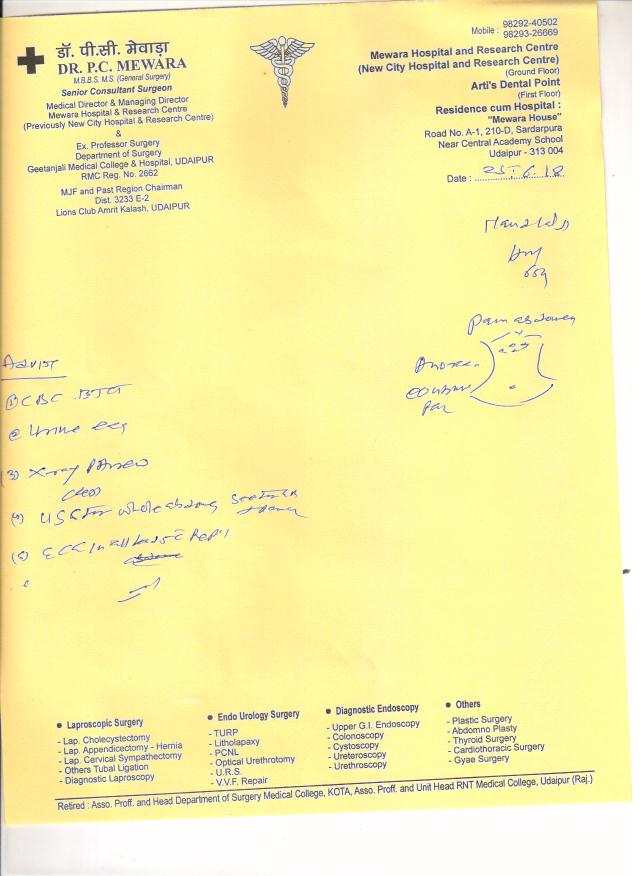 डॉ. पी.सी. मेवाड़ा
DR. P.C. MEWARA
M.B.B.S. M.S. (General Surgery)
Senior Consultant Surgeon
Medical Director & Managing Director
Mewara Hospital & Research Centre
(Previously New City Hospital & Research Centre)
&
Ex. Professor Surgery
Department of Surgery
Geetanjali Medical College & Hospital, UDAIPUR
RMC Reg. No. 2662
MJF and Past Region Chairman
Dist. 3233 E-2
Lions Club Amrit Kalash, UDAIPUR
Mobile : 98292-40502
98293-26669
Mewara Hospital and Research Centre
(New City Hospital and Research Centre)
(Ground Floor)
Arti's Dental Point
(First Floor)
Residence cum Hospital :
"Mewara House"
Road No. A-1, 210-D, Sardarpura
Near Central Academy School
Udaipur - 313 004
Date : 25.6.18
Pain abdomen
Advise
(1) CBC
(2) Urine
(3) X-ray
Chest
(4) USG for whole
(5) ECG in all leads
● Laproscopic Surgery
- Lap. Cholecystectomy
- Lap. Appendicectomy - Hernia
- Lap. Cervical Sympathectomy
- Others Tubal Ligation
- Diagnostic Laproscopy
● Endo Urology Surgery
- TURP
- Litholapaxy
- PCNL
- Optical Urethrotomy
- U.R.S.
- V.V.F. Repair
● Diagnostic Endoscopy
- Upper G.I. Endoscopy
- Colonoscopy
- Cystoscopy
- Ureteroscopy
- Urethroscopy
● Others
- Plastic Surgery
- Abdomno Plasty
- Thyroid Surgery
- Cardiothoracic Surgery
- Gyae Surgery
Retired : Asso. Proff. and Head Department of Surgery Medical College, KOTA, Asso. Proff. and Unit Head RNT Medical College, Udaipur (Raj.)